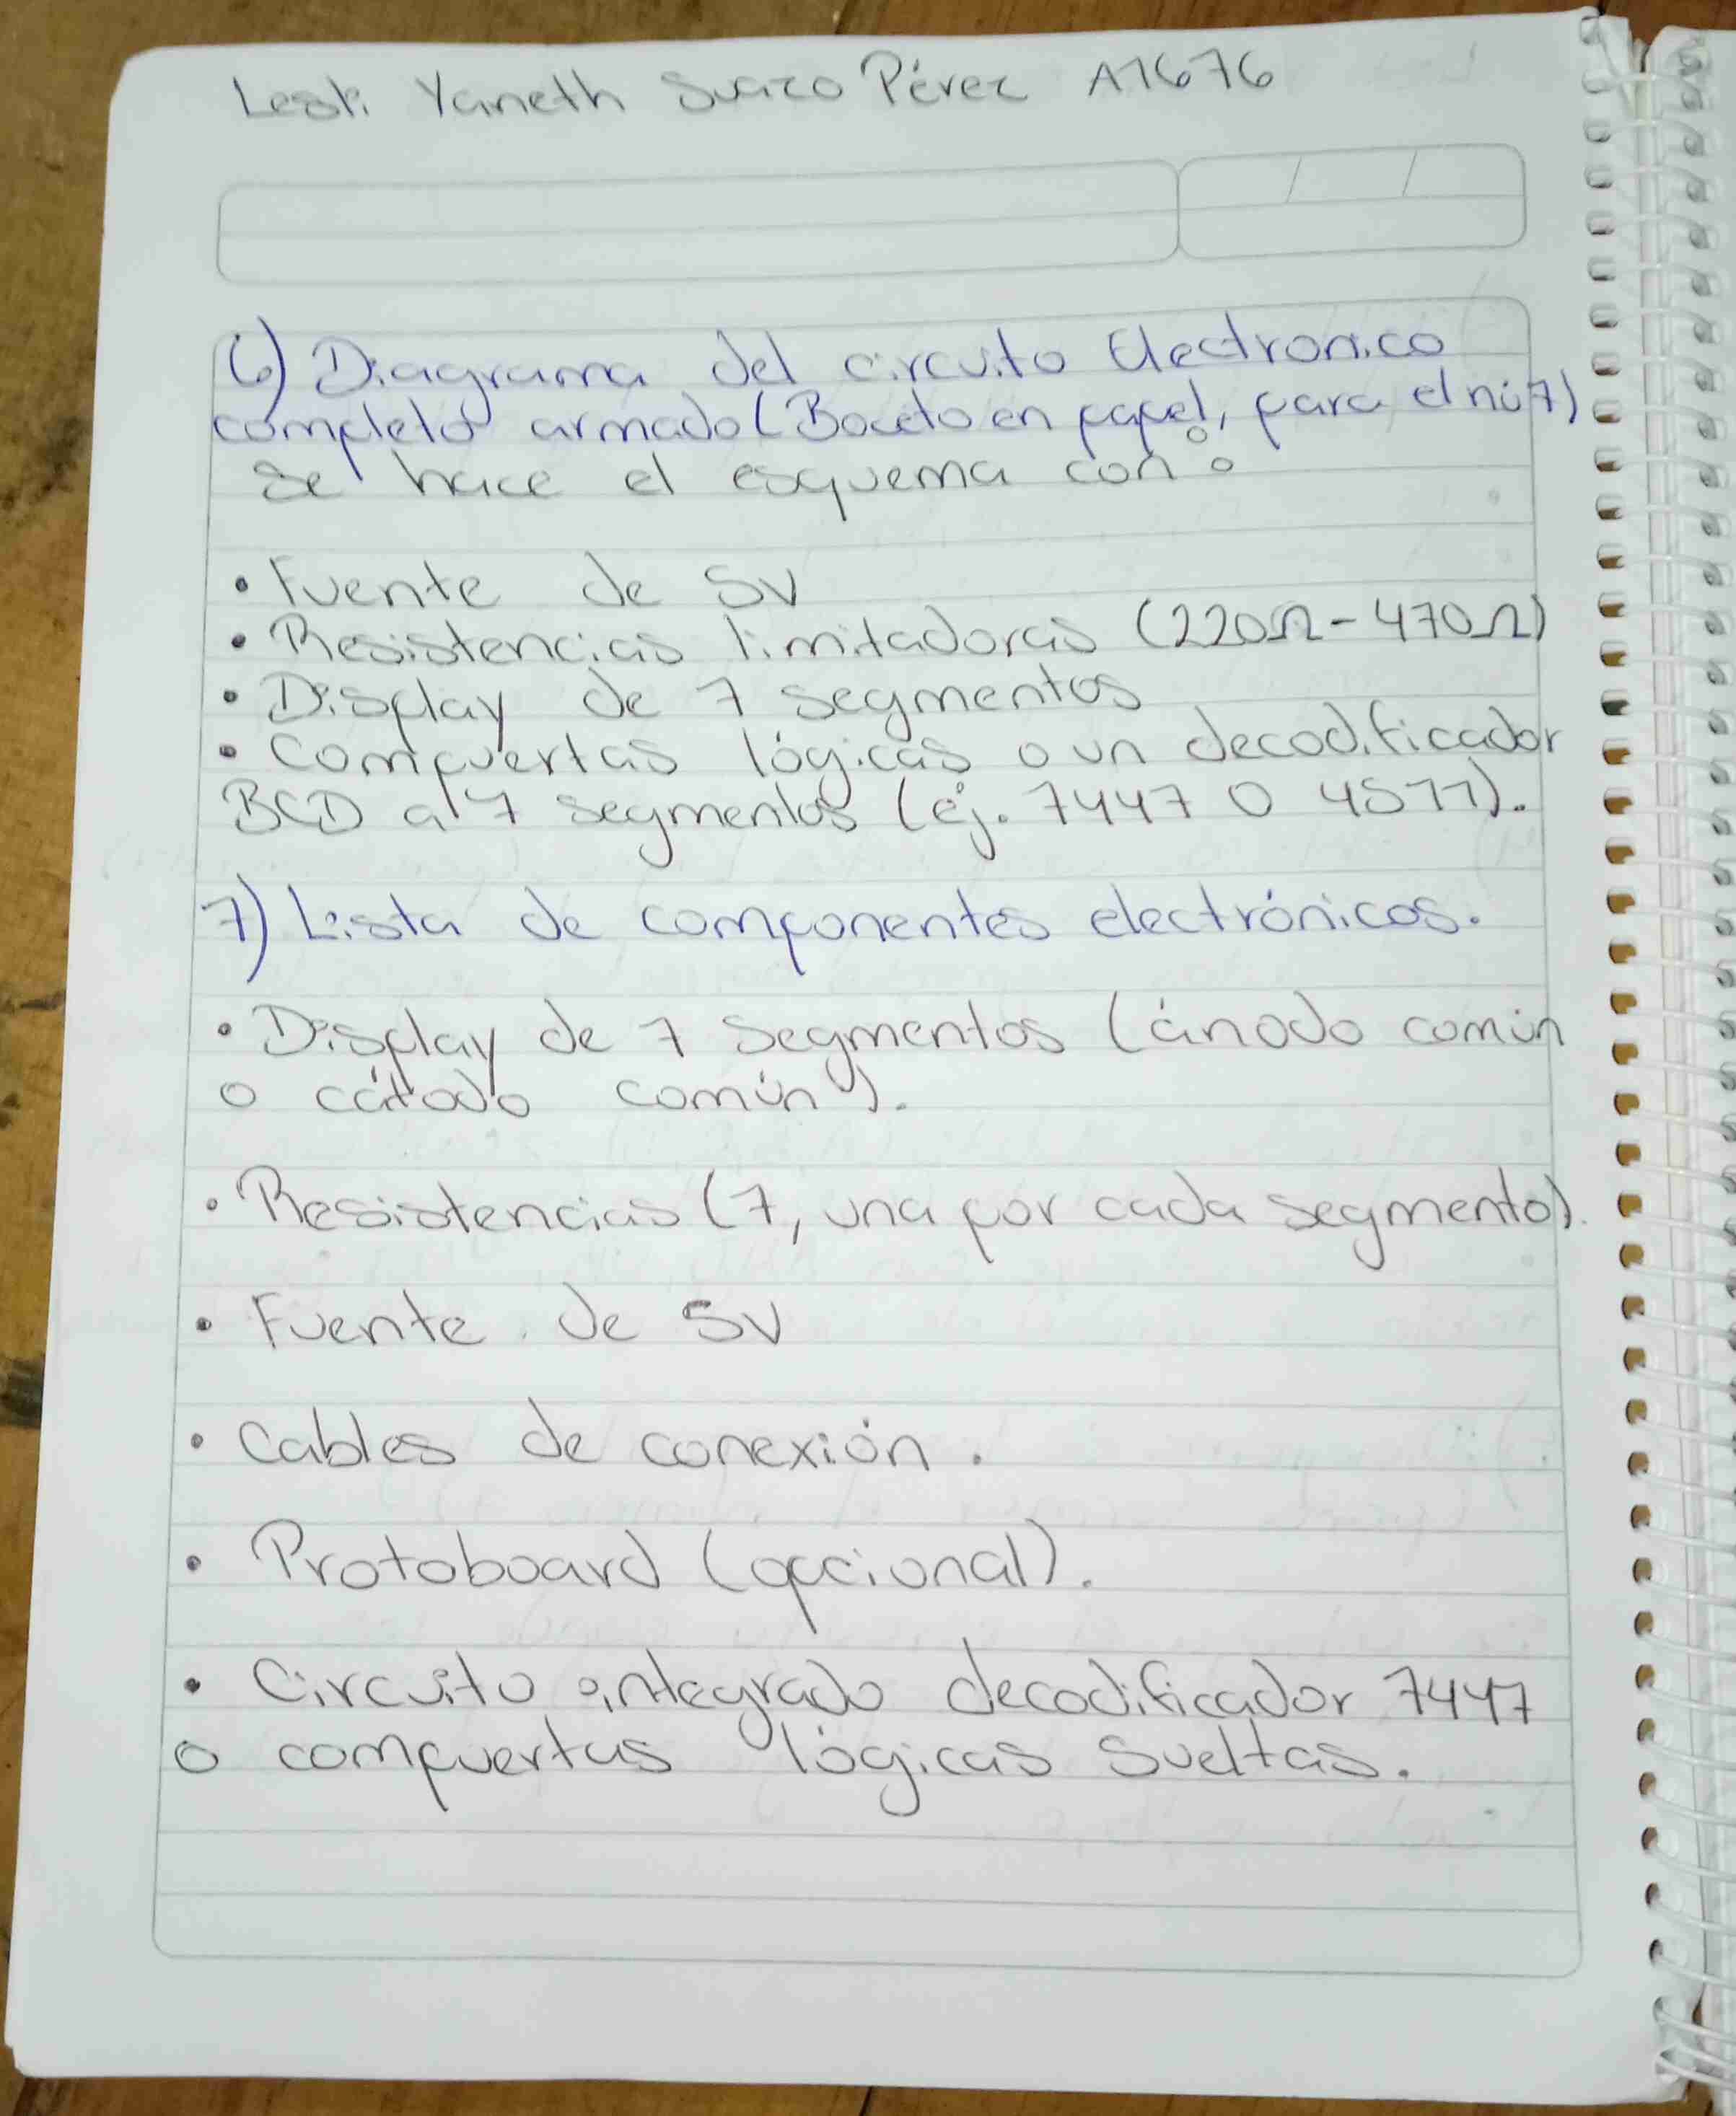 Lesli Yaneth Suazo Pérez A1676
6) Diagrama del circuito Electronico
completo armado (Boceto en papel, para el nú7)
se hace el esquema con:
• Fuente de 5V
• Resistencias limitadoras (220Ω - 470Ω)
• Display de 7 segmentos
• Compuertas lógicas o un decodificador
BCD a 7 segmentos (ej. 7447 o 4511).
7) Lista de componentes electrónicos.
• Display de 7 segmentos (ánodo común
o cátodo común).
• Resistencias (7, una por cada segmento).
• Fuente de 5V
• Cables de conexión.
• Protoboard (opcional).
• Circuito integrado decodificador 7447
o compuertas lógicas sueltas.